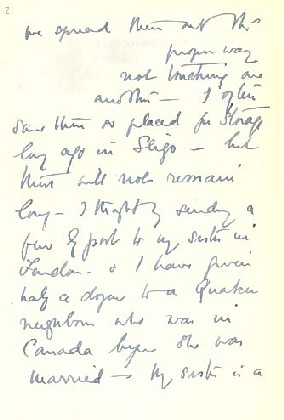 2
we spread them out this
proper way
not touching one
another — I often
saw them so placed for storage
long ago in Sligo — but
these will not remain
long — I thought of sending a
few by post to my sister in
London — & I have given
half a dozen to a Quaker
neighbour who was in
Canada before she was
married — My sister is a